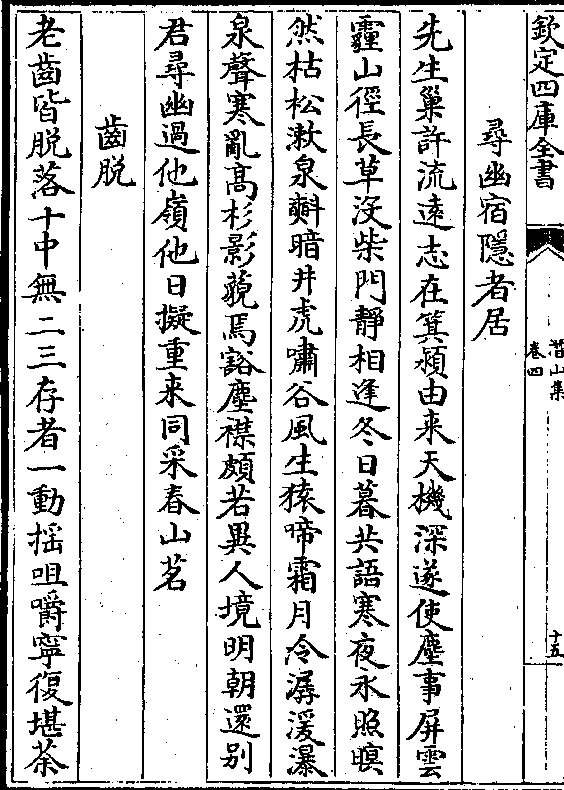 欽定四庫全書
潛山集
卷四
十五
尋幽宿隱者居
先生巢許流遠志在箕潁由来天機深遂使塵事屏雲
霾山徑長草没柴門靜相逢冬日暮共語寒夜永照暝
然枯松漱泉㪺暗井虎嘯谷風生猿啼霜月冷潺湲瀑
泉聲寒亂高杉影藐焉豁塵襟頗若異人境明朝還别
君尋幽過他嶺他日擬重来同采春山茗
齒脱
老齒皆脱落十中無二三存者一動揺咀嚼寧復堪荼